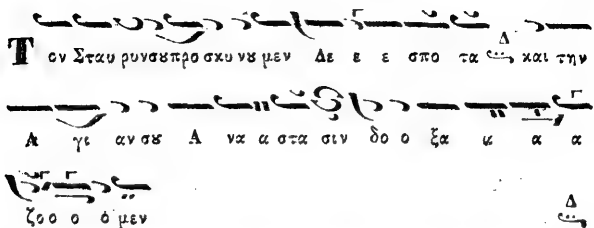 Τον Σταυ ρον σου προ σκυ νου μεν Δε ε ε σπο τα Δ και την
Α γι αν σου Α να α στα σιν δο ο ξα α α α
ζοο ο ο μεν Δ